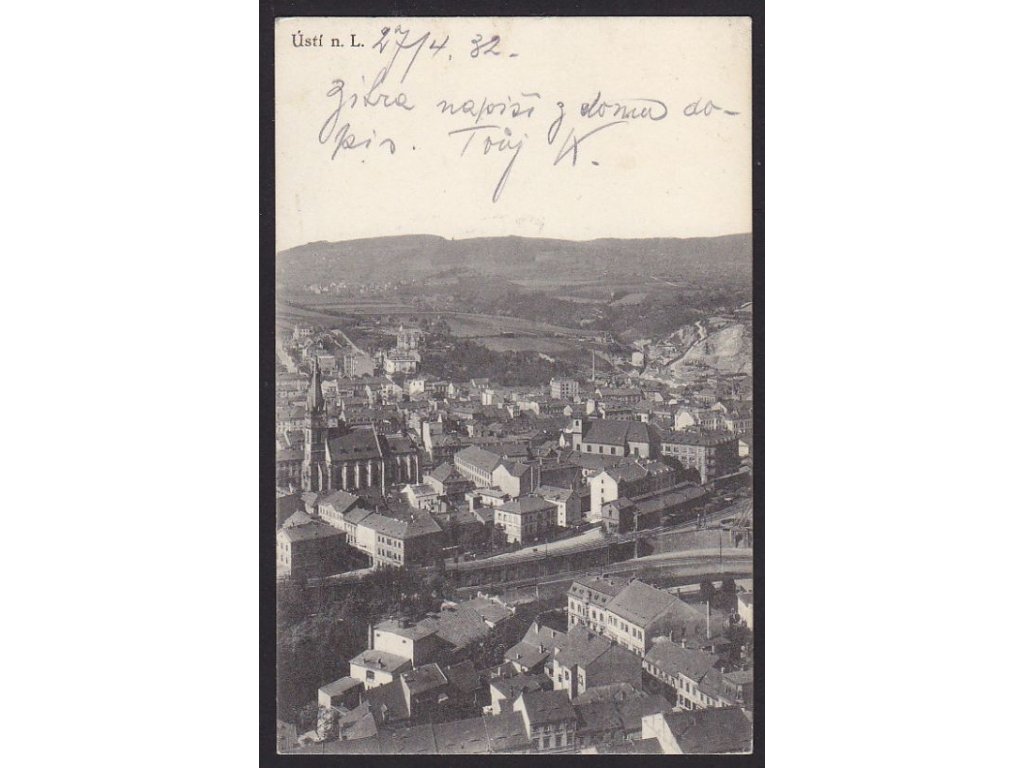 Ústí n. L. 27/4. 32.
Zítra napíši z domu do-
pis. Tvůj K.